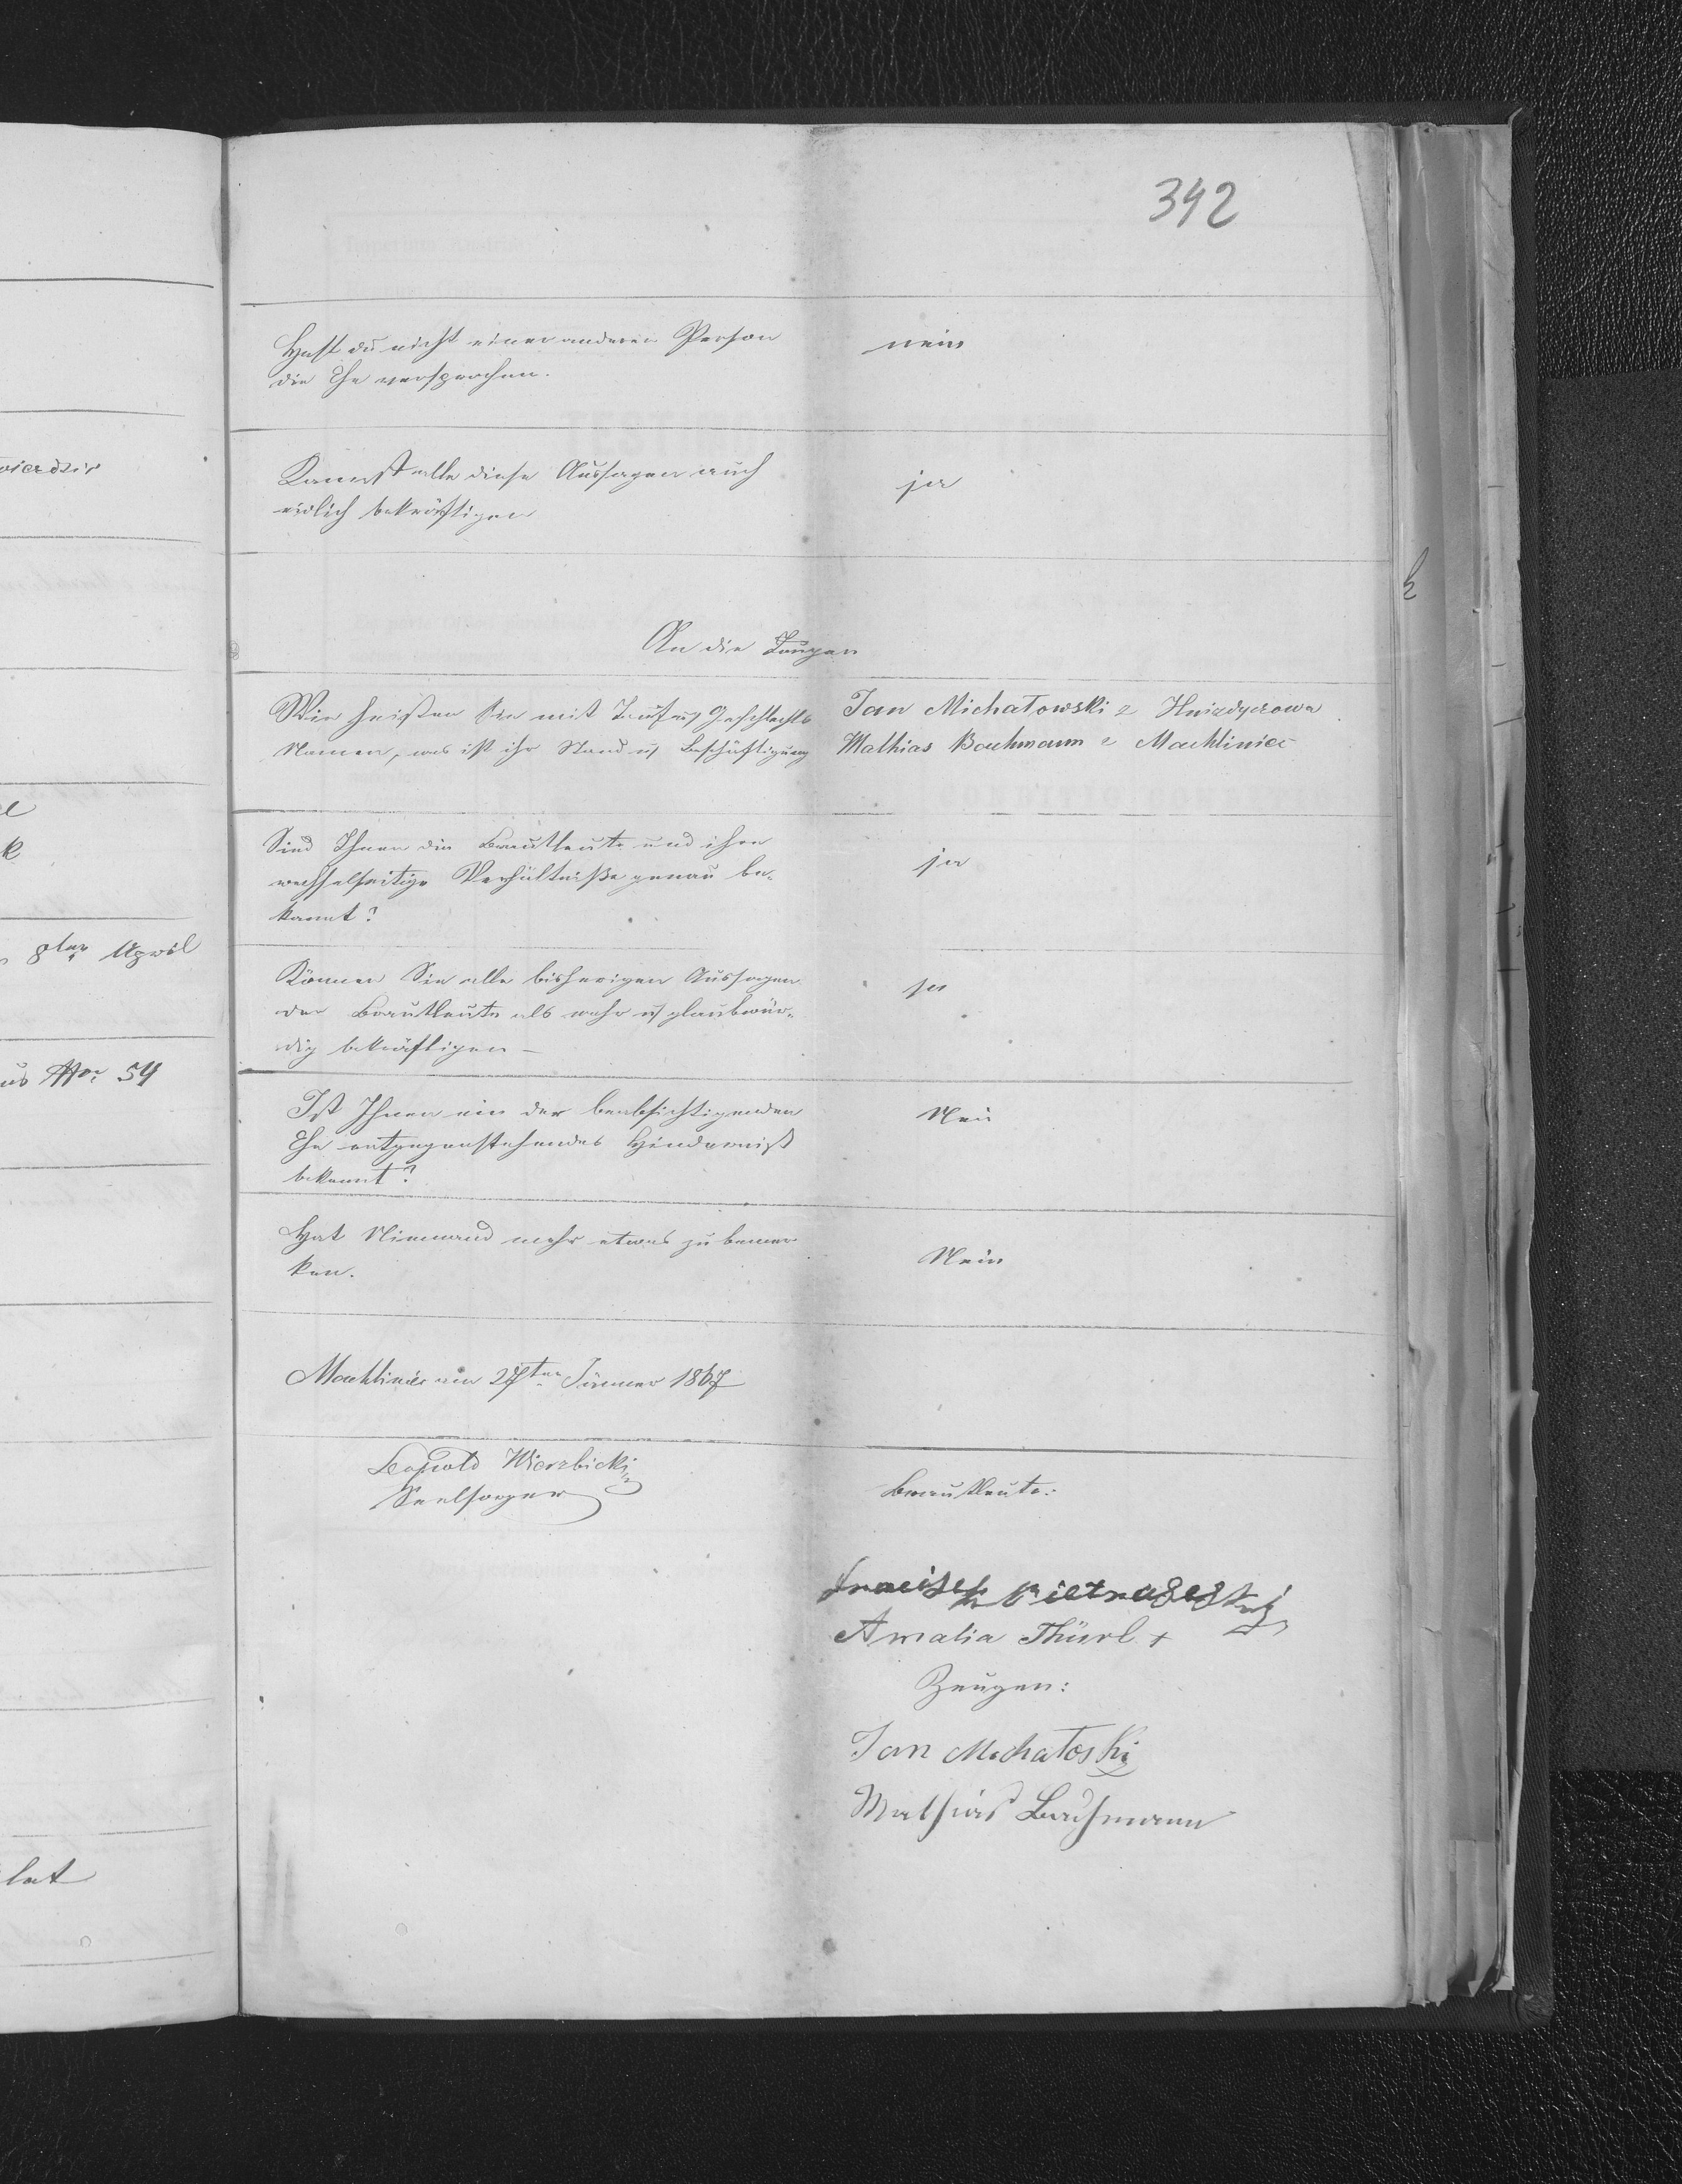 342
Hast du nicht einer anderen Person
die Ehe versprochen.
nein
Kannst alle diese Aussagen auch
eidlich bekräftigen
ja
An die Zeugen
Wie heißen Sie mit Tauf u Geschlechts
Namen, was ist ihr Stand u Beschäftigung
Jan Michałowski z Hnizdyczowa
Mathias Bachmann z Machliniec
Sind Ihnen die Brautleute und ihre
wechselseitige Verhältniße genau be-
kannt?
ja
Können Sie alle bisherigen Aussagen
der Brautleute als wahr u glaubwür-
dig bekräftigen –
ja
Ist Ihnen ein der beabsichtigenden
Ehe entgegenstehendes Hinderniß
bekannt?
Nein
Hat Niemand mehr etwas zu bemer
ken.
Nein
Machliniec am 27ten Jänner 1867
Leopold Wierzbicki
Seelsorger
Brautleute:
Amalia Thürl +
Zeugen:
Jan Michatoski
Mathias Bachmann
wierdzir
8ter April
Nro 54
let